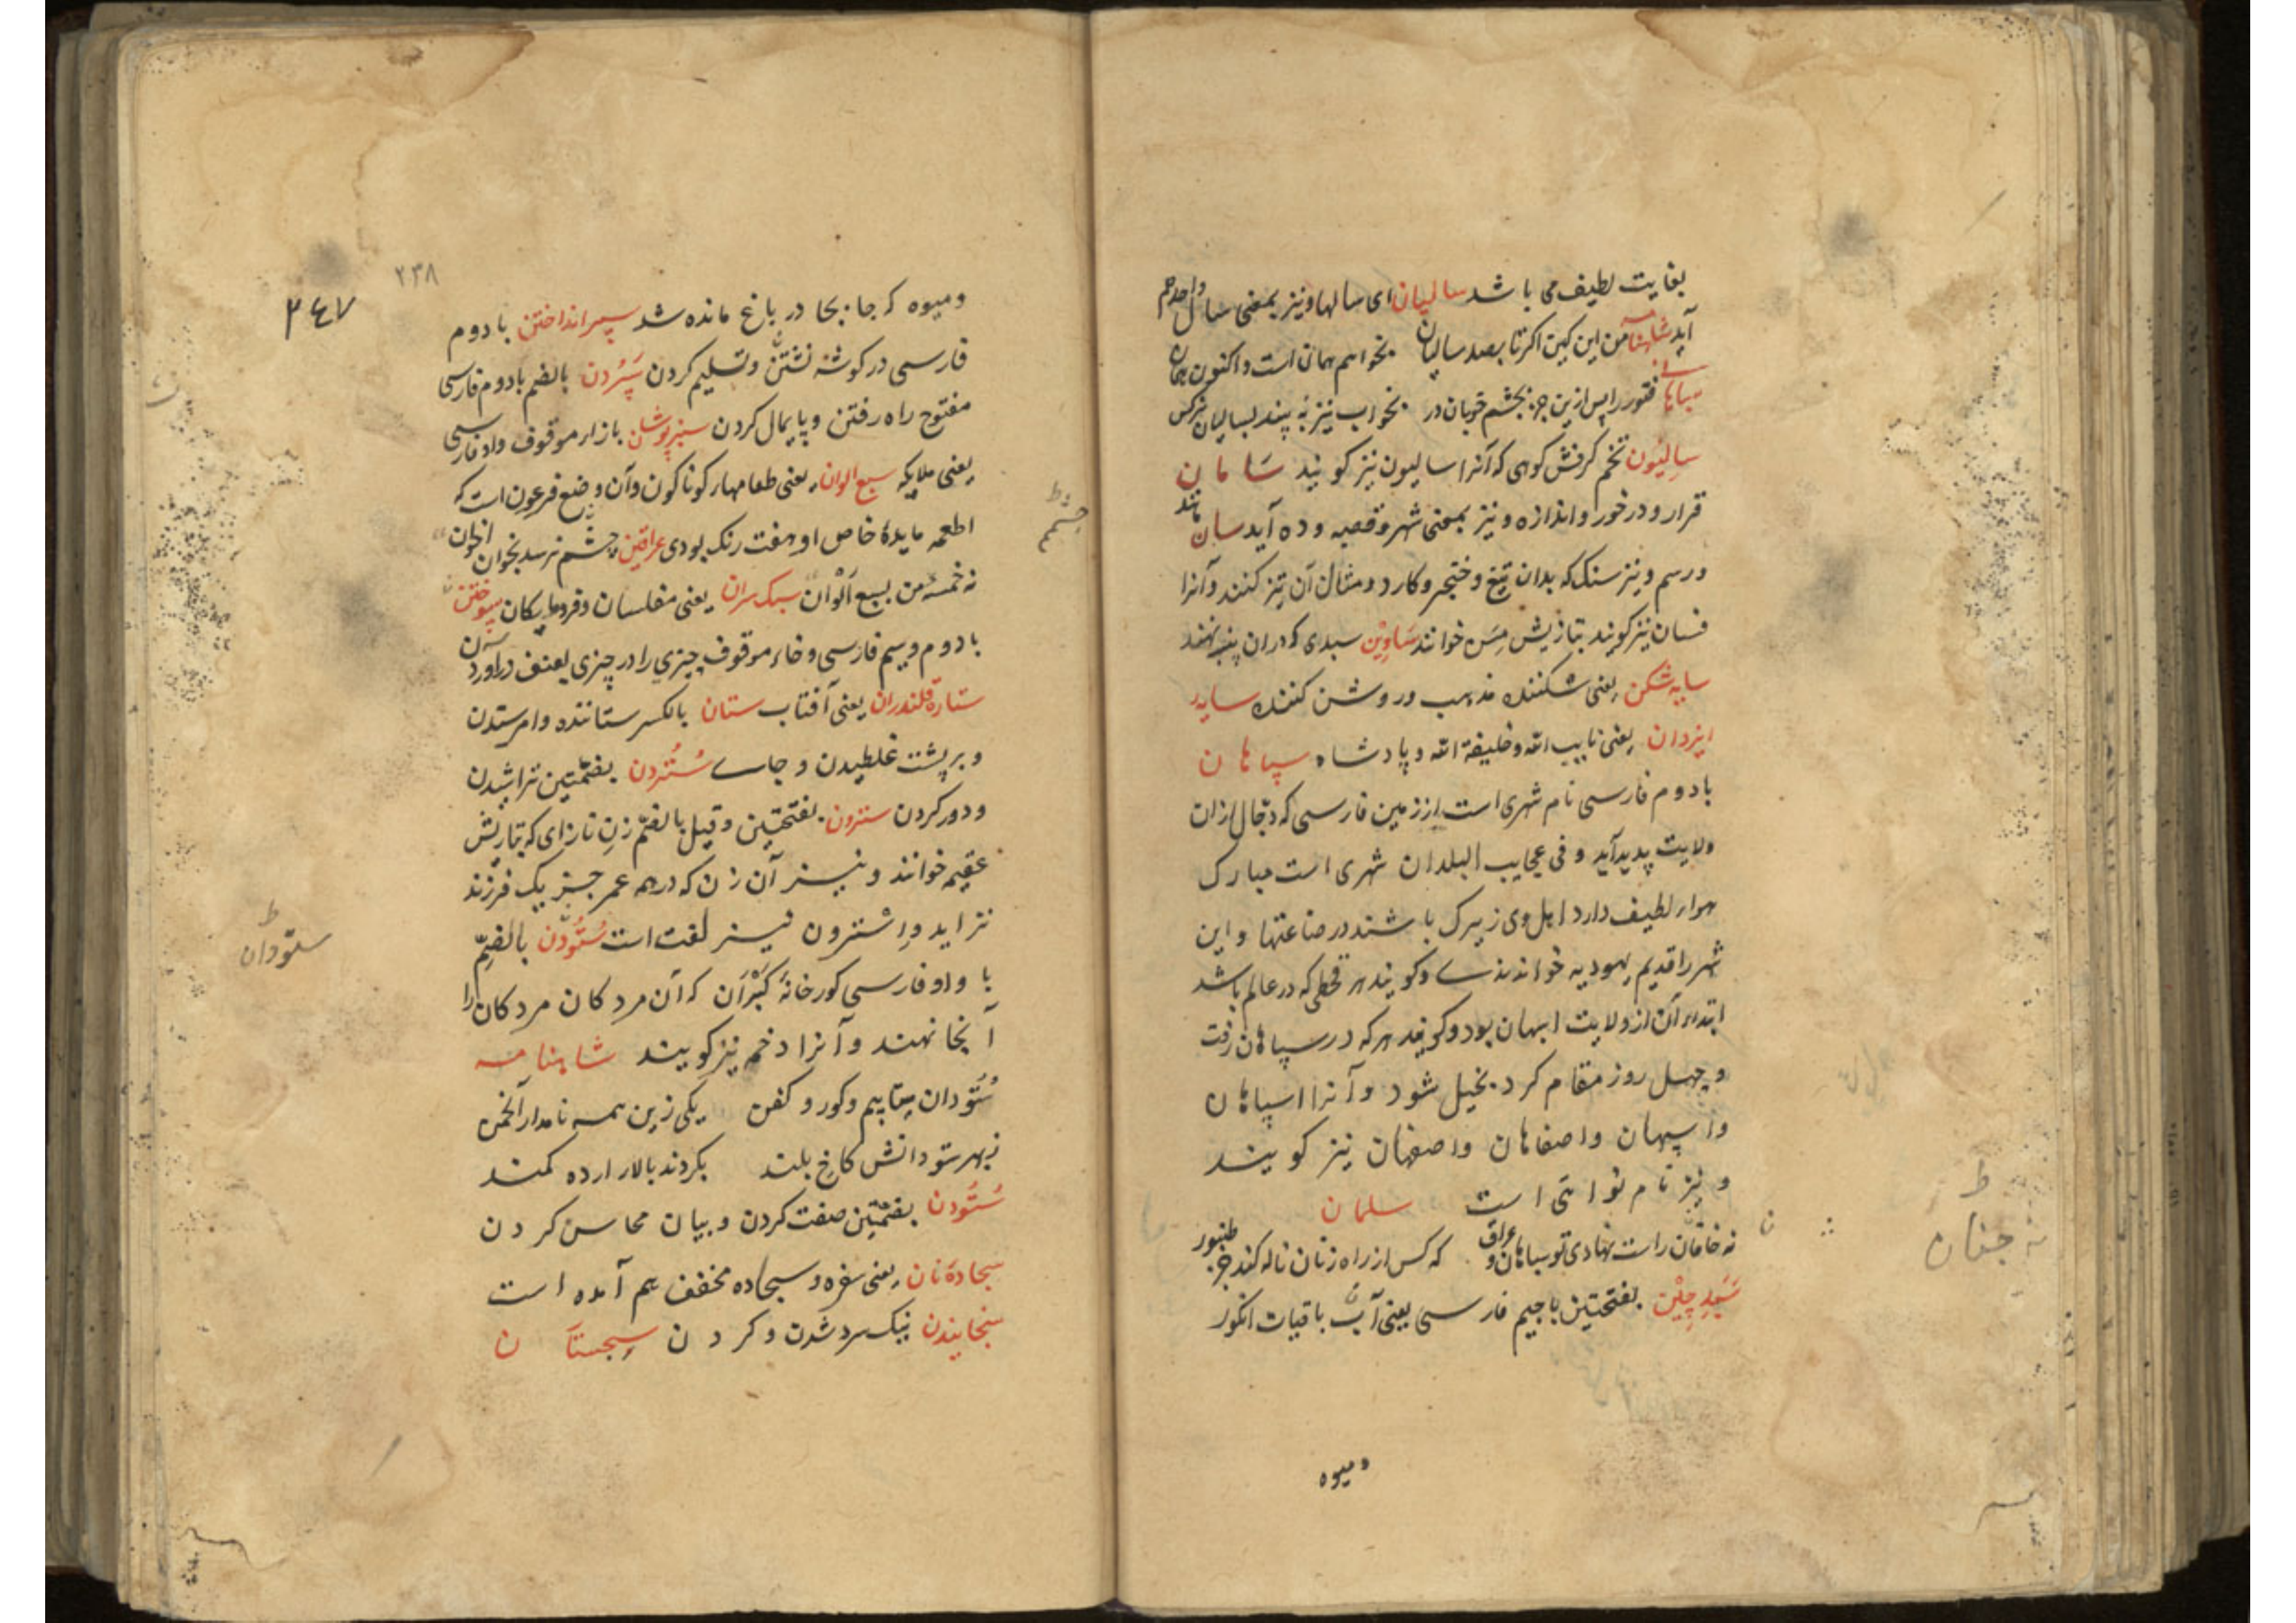 بغایت لطیف می باشد سالیان ای سالها و نیز بمعنی سال واحد هم
آید شاهنامه من این کین اکر تا بصد سالیان بخواهم همان است و اکنون همان
فتور را پس ازین جز بچشم خوبان در بخواب نیز نه بیند بسالیان نرکس
سالیون تخم کرفش کوهی که آنرا سالیون نیز کویند سامان
قرار و درخور و اندازه و نیز بمعنی شهر و قصبه و ده آید سان مانند
و رسم و نیز سنک که بدان تیغ و خنجر و کارد و مثال آن تیز کنند و آنرا
فسان نیز کویند بتازیش مسن خوانند ساوین سبدی که دران پنبه نهند
سایه شکن یعنی شکننده مذهب و روشن کننده سایه
ایزدان یعنی نایب الله و خلیفة الله و پادشاه سپاهان
با دوم فارسی نام شهری است از زمین فارسی که دجال ازان
ولایت پدید آید و فی عجایب البلدان شهری است مبارک
هوار لطیف دارد اهل وی زیرک باشند در صناعتها و این
شهر را قدیم یهودیه خواندندے و کویند هر قحطی که در عالم باشد
ابتداء آن از ولایت ابهان بود و کویند هر که در سپاهان رفت
و چهل روز مقام کرد بخیل شود و آنرا اسپاهان
و اسپهان و اصفاهان و اصفهان نیز کویند
و نیز نام نوائی است سلمان
نه خاقان راست نهادی تو سپاهان و عراق که کس از راه زنان ناله کند جز طنبور
سپد چین بفتحتین با جیم فارسی یعنی آب باقیات انکور
و میوه
ط
جنان
۲۴۷
۲۳۸
و میوه که جا بجا در باغ مانده شد سپر انداختن با دوم
فارسی در کوشه نشتن و تسلیم کردن سپردن بالضم با دوم فارسی
مفتوح راه رفتن و پایمال کردن سبزپوشان با زار موقوف و واو فارسی
یعنی ملایکه سبع الوان یعنی طعامهار کوناکون و آن وضع فرعون است که
اطعمه مایدهٔ خاص او هفت رنک بودی عراقین چشم نرسد بخوان اخوان
نه خمسه من بسبع الوان سبک سران یعنی مفلسان و فرومایکان سپوختن
با دوم و سیم فارسی و خاء موقوف چیزی را در چیزی بعنف درآوردن
ستارهٔ قلندران یعنی آفتاب ستان بالکسر ستاننده و امر ستدن
و بر پشت غلطیدن و جاے ستردن بضمتین تراشیدن
و دور کردن سترون بفتحتین و قیل بالضم زن نازای که بتازیش
عقیم خوانند و نیز آن زن که در همه عمر جز یک فرزند
نزاید و استرون نیز لغت است ستودن بالضم
با واو فارسی کورخانهٔ کبران که آن مردکان مردکان را
آنجا نهند و آنرا دخمه نیز کویند شاهنامه
ستودان بیابیم و کور و کفن یکی زین همه نامدار انجمن
بهر ستودانش کاخ بلند بکردند بالار ارده کمند
ستودن بضمتین صفت کردن و بیان محاسن کردن
سجادهٔ نان یعنی سفره و سجاده مخفف هم آمده است
سنجانیدن نیک سرد شدن و کردن سجستان
چشم ط
ط
ستودان